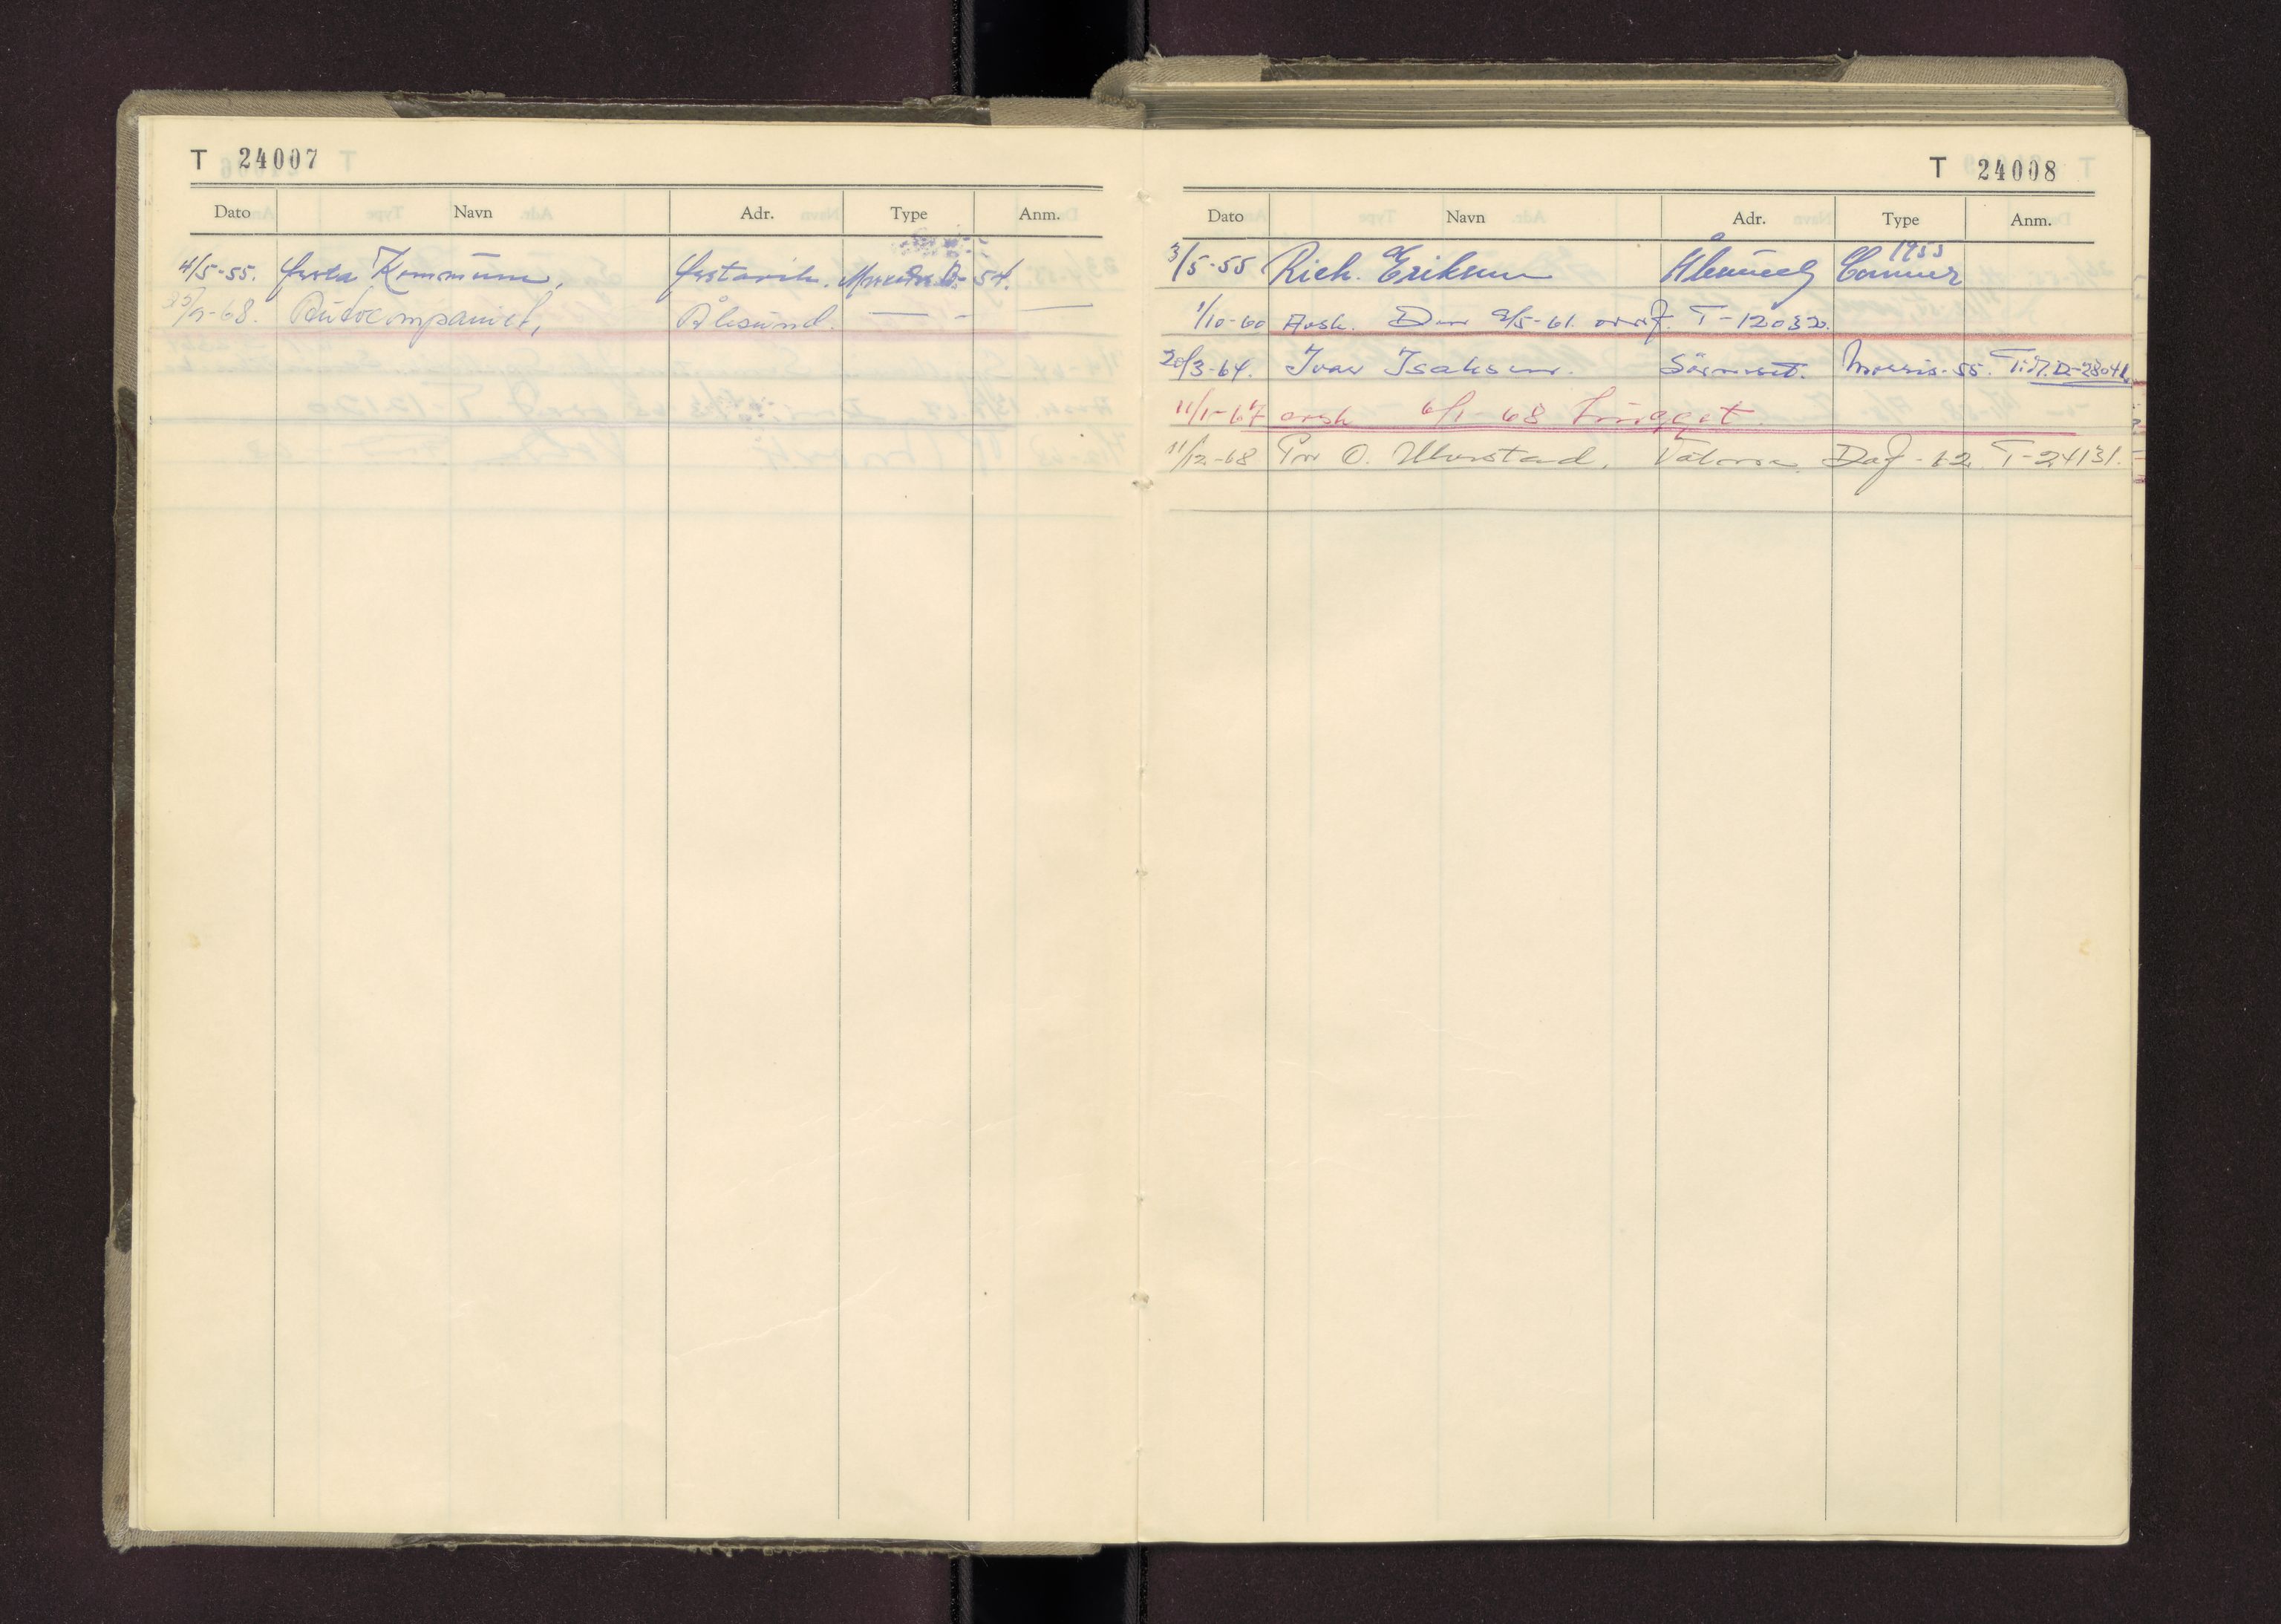 T 24007
Dato Navn Adr. Type Anm.
4/5-55. Ørsta Kommune, Ørstavik. 54.
/9-68. Autocompaniet, Ålesund. — - —
T 24008
Dato Navn Adr. Type Anm.
1953
3/5-55 Rich. Eriksen Ålesund Commer
1/10-60 Avsk. Den 9/5-61. overf. T-12032.
20/3-64. Ivar Isaksen. Sörneset. Morris-55. Tidl. D-28041
11/1-67 avsk 6/1-68 hugget.
11/12-68 Per O. Daf-62. T-24131.